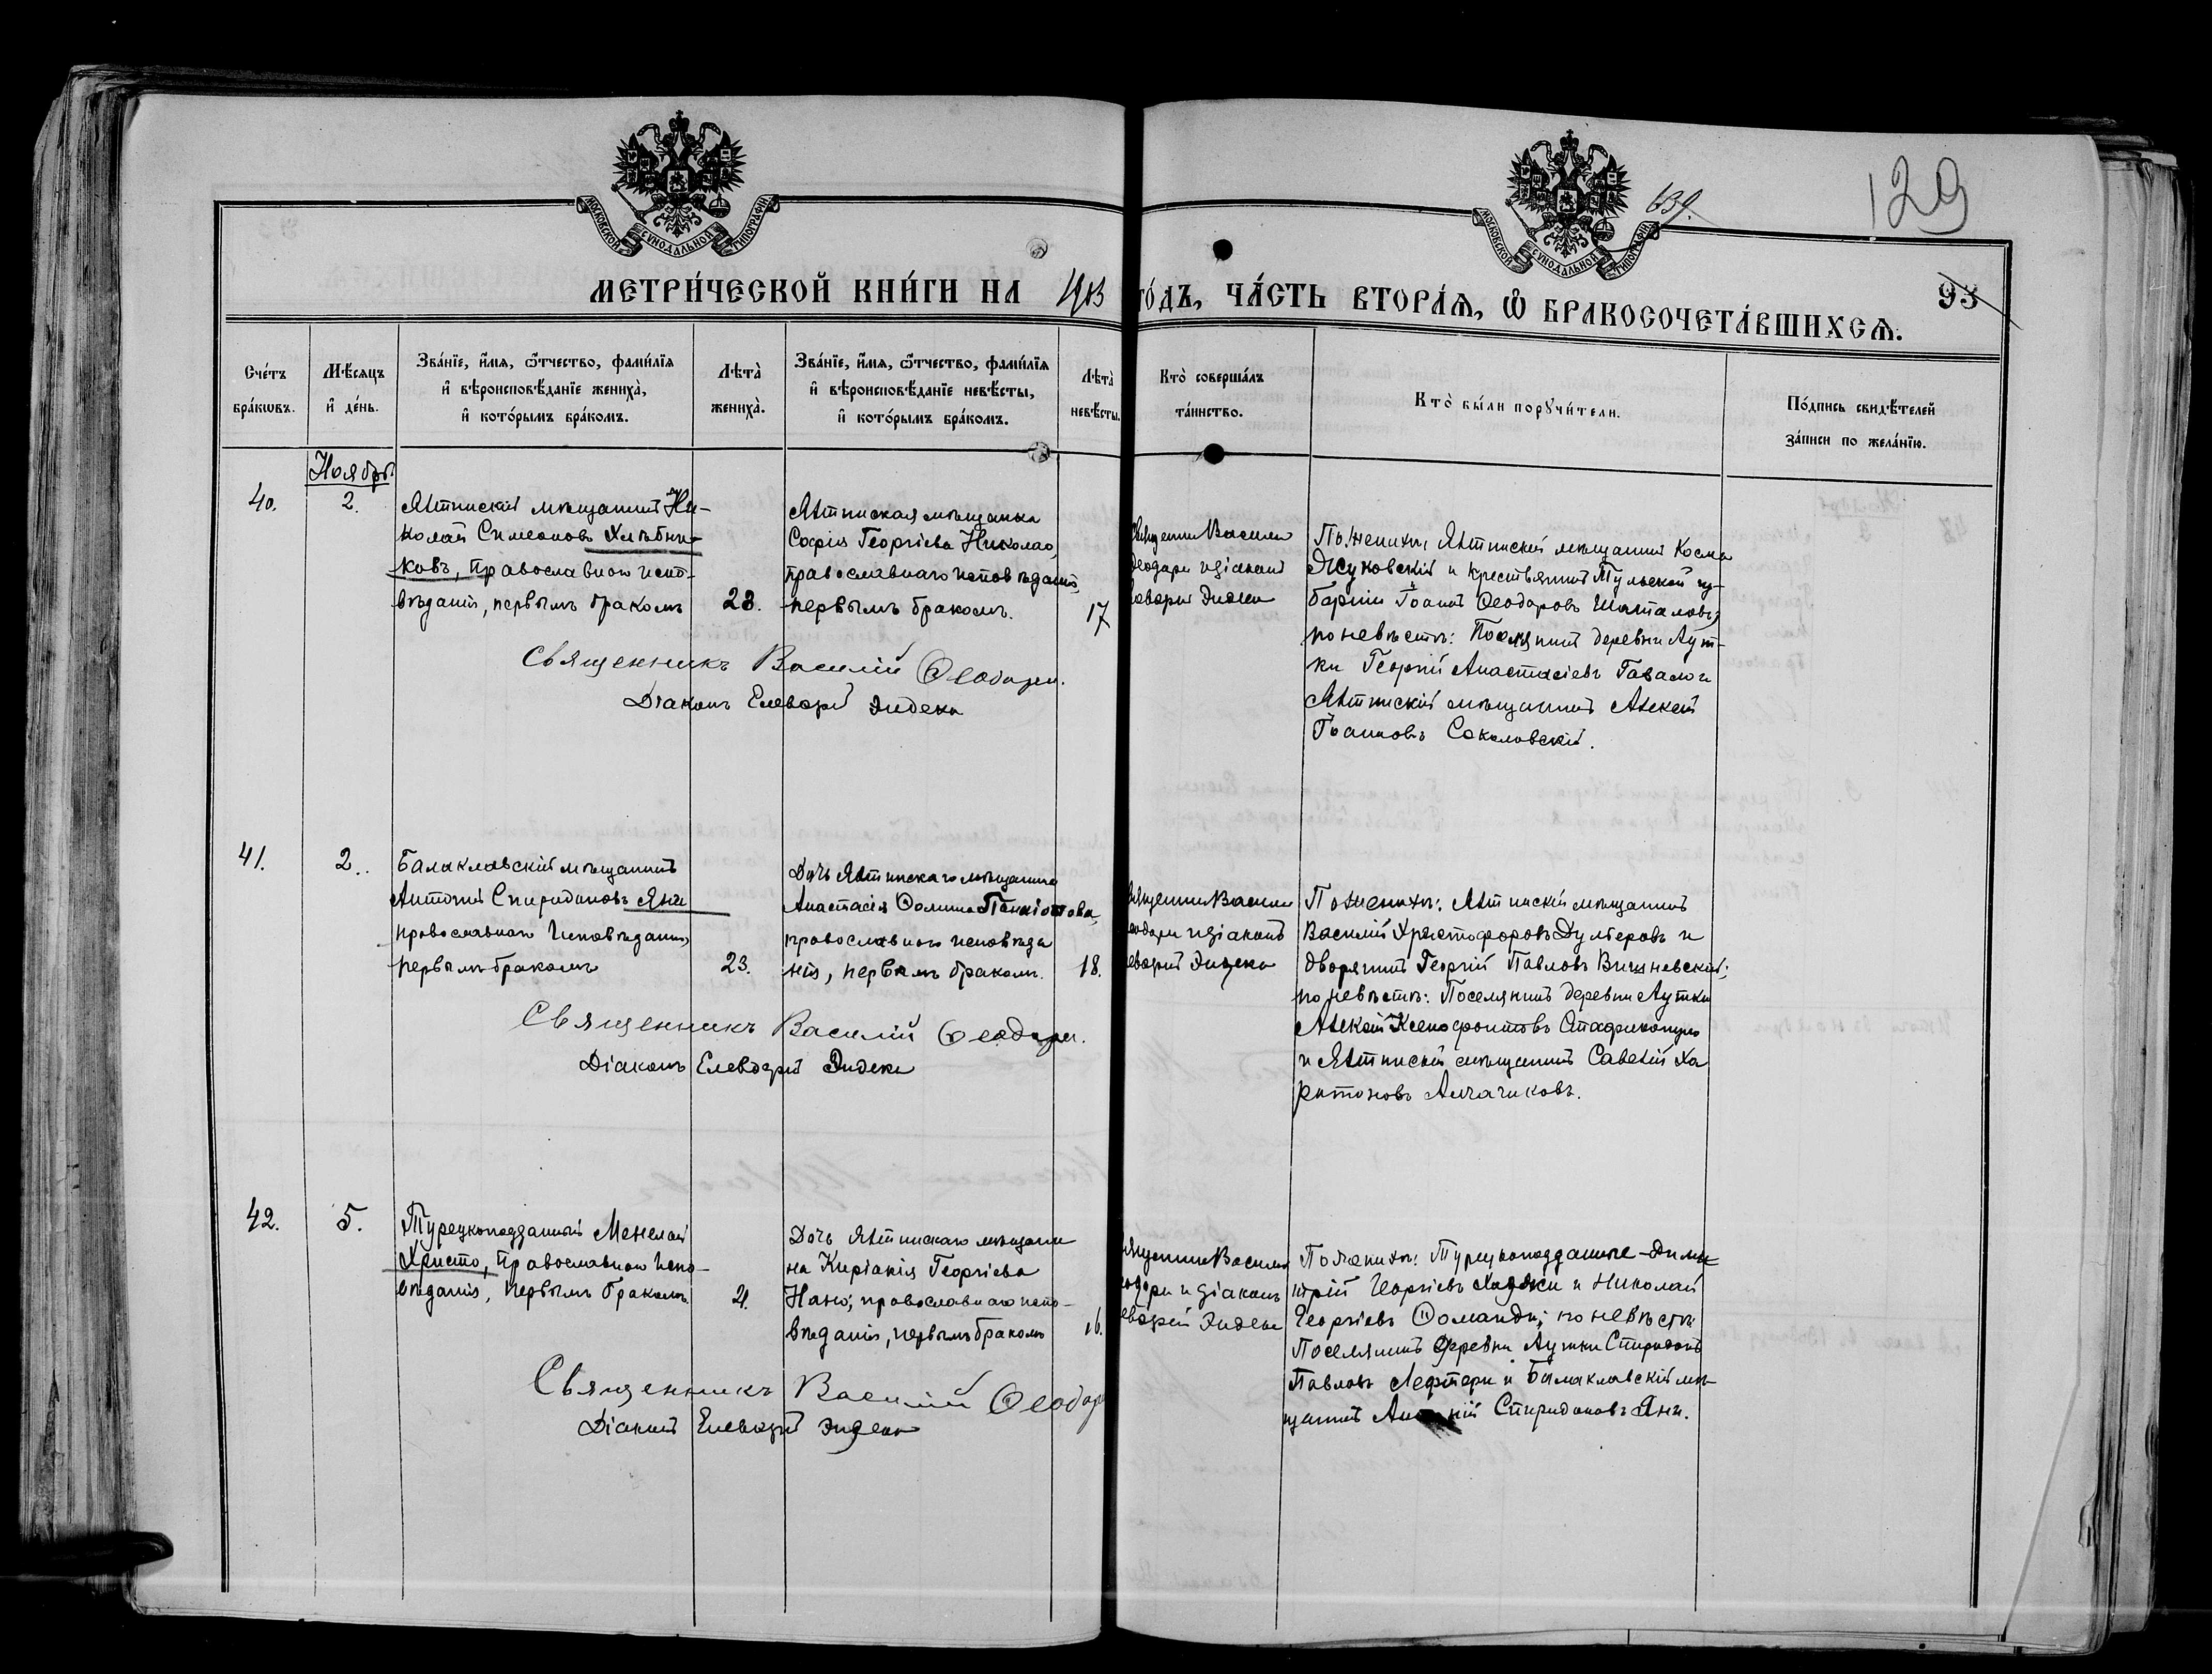 МОСКОВСКОЙ СУНОДАЛЬНОЙ ТИПОГРАФІИ
МОСКОВСКОЙ СУНОДАЛЬНОЙ ТИПОГРАФІИ
639.
129
93
МЕТРИ́ЧЕСКОЙ КНИ́ГИ НА 1913 ГО́ДЪ, ЧА́СТЬ ВТОРА́Ѧ, Ѡ҆ БРАКОСОЧЕТА́ВШИХСѦ.
Сче́тъ
бра́кѡвъ.
Мѣ́сѧцъ
и҆ де́нь.
Зва́нїе, и҆́мѧ, ѻ҆́тчество, фами́лїѧ
и҆ вѣроисповѣ́данїе жениха̀,
и҆ кото́рымъ бра́комъ.
Лѣта̀
жениха̀.
Зва́нїе, и҆́мѧ, ѻ҆́тчество, фами́лїѧ
и҆ вѣроисповѣ́данїе невѣ́сты,
и҆ кото́рымъ бра́комъ.
Лѣта̀
невѣ́сты.
Кто̀ соверша́лъ
та́инство.
Кто̀ бы́ли порꙋчи́тели.
По́дпись свидѣ́телей
за́писи по жела́нїю.
Ноябрь
40.
2.
Ялтинскій мѣщанинъ Ни-
колай Симеоновъ Хлѣбни-
ковъ, православнаго испо-
вѣданія, первымъ бракомъ
23.
Ялтинская мѣщанка
Софія Георгіева Николао,
православнаго исповѣданія,
первымъ бракомъ.
17
Священникъ Василій
Ѳеодори и діаконъ
Елевѳерій Эндека
По женихѣ: Ялтинскій мѣщанинъ Косма
Жуковскій и крестьянинъ Тульской гу-
берніи Іоаннъ Ѳеодоровъ Шаталовъ;
по невѣстѣ: Поселянинъ деревни Аут-
ки Георгій Анастасіевъ Гавало и
Ялтинскій мѣщанинъ Алексѣй
Іоанновъ Соколовскій.
Священникъ Василій Ѳеодори.
Діаконъ Елевѳерій Эндека
41.
2.
Балаклавскій мѣщанинъ
Антоній Спиридоновъ Яни
православнаго исповѣданія,
первымъ бракомъ
23.
Дочь Ялтинскаго мѣщанина
Анастасія Ѳомина Панаіотова,
православнаго исповѣда
нія, первымъ бракомъ.
18.
Священникъ Василій
Ѳеодори и діаконъ
Елевѳерій Эндека
По женихѣ: Ялтинскій мѣщанинъ
Василій Христофоровъ Дулгеровъ и
дворянинъ Георгій Павловъ Вишневскій;
по невѣстѣ: Поселянинъ деревни Аутки
Алексѣй Ксенофонтовъ Стафилопуло
и Ялтинскій мѣщанинъ Савелій Ха
ритоновъ Алчачиковъ.
Священникъ Василій Ѳеодори.
Діаконъ Елевѳерій Эндека
42.
5.
Турецкоподданный Менелай
Христо, православнаго испо-
вѣданія, первымъ бракомъ.
21.
Дочь Ялтинскаго мѣщани
на Киріакія Георгіева
Нано, православнаго испо-
вѣданія, первымъ бракомъ
16.
Священникъ Василій
Ѳеодори и діаконъ
Елевѳерій Эндека
По женихѣ: Турецкоподданные Дими-
трій Георгіевъ Хаджи и Николай
Георгіевъ Ѳоманди; по невѣстѣ:
Поселянинъ деревни Аутки Спиридонъ
Павловъ Лефтери и Балаклавскій мѣ-
щанинъ Антоній Спиридоновъ Яни.
Священникъ Василій Ѳеодори
Діаконъ Елевѳерій Эндека